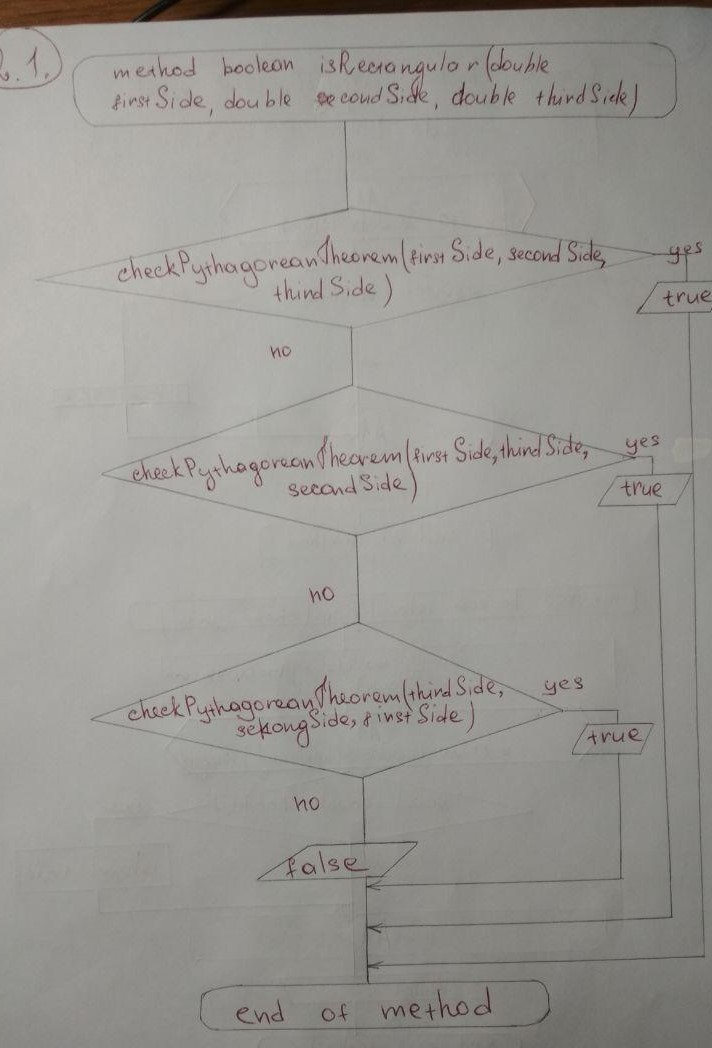 2.1.
method boolean isRectangular(double
firstSide, double secondSide, double thirdSide)
checkPythagoreanTheorem(firstSide, secondSide,
thirdSide)
yes
true
no
checkPythagoreanTheorem(firstSide, thirdSide,
secondSide)
yes
true
no
checkPythagoreanTheorem(thirdSide,
sekongSide, firstSide)
yes
true
no
false
end of method